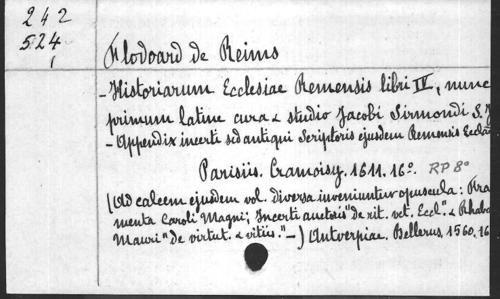 242
524
1
Flodoard de Reims
- Historiarum Ecclesiae Remensis libri IV, nunc
primum latine cura & studio Jacobi Sirmondi S. J
- Appendix incerti sed antiqui Scriptoris ejusdem Remensis Eccla
Parisiis. Cramoisy. 1611. 16º. RP 8º
(Ad calcem ejusdem vol. diversa inveniuntur opuscula: Fra
menta Caroli Magni; Incerti auctoris "de rit. vet. Eccl." & Rhaba
Mauri "de virtut. & vitiis." -) Antverpiae. Bellerus. 1560. 16